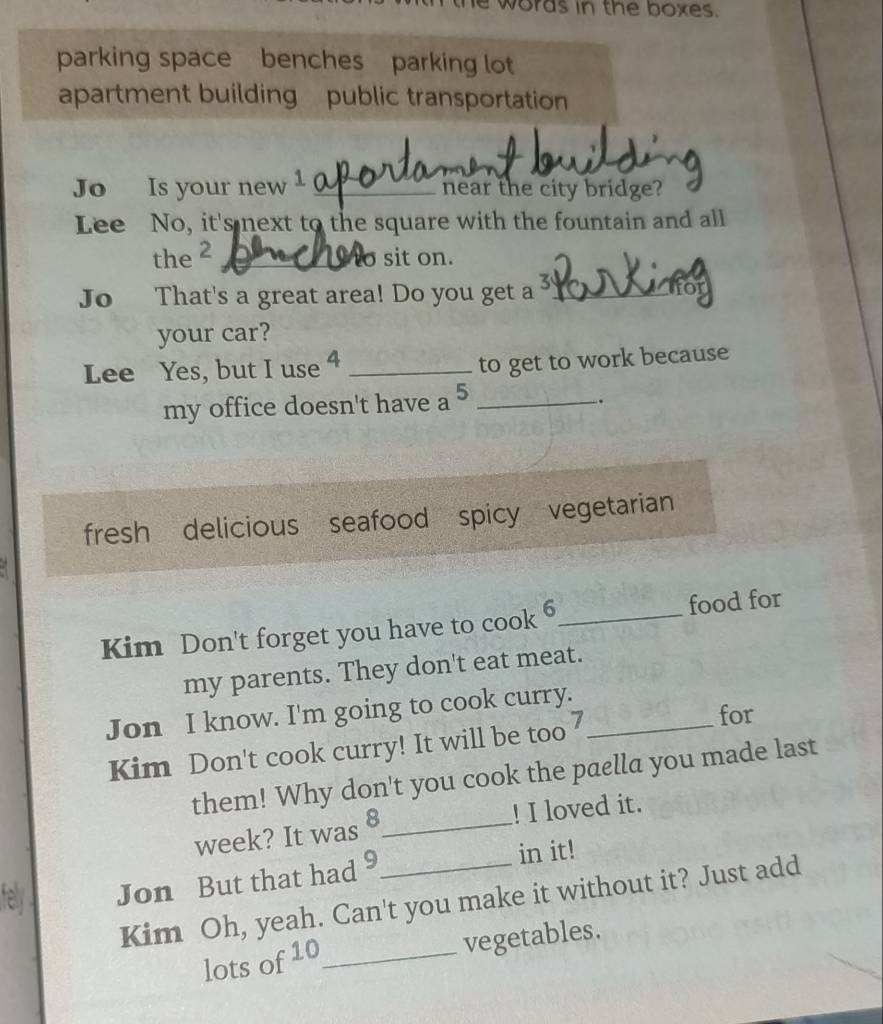 with the words in the boxes.
parking space benches parking lot
apartment building public transportation
Jo Is your new 1 aportament building near the city bridge?
Lee No, it's next to the square with the fountain and all
the 2 benches to sit on.
Jo That's a great area! Do you get a 3 Parking for
your car?
Lee Yes, but I use 4 __________ to get to work because
my office doesn't have a 5 __________.
fresh delicious seafood spicy vegetarian
Kim Don't forget you have to cook 6 __________ food for
my parents. They don't eat meat.
Jon I know. I'm going to cook curry.
Kim Don't cook curry! It will be too 7 __________ for
them! Why don't you cook the paella you made last
week? It was 8 __________! I loved it.
Jon But that had 9 __________ in it!
Kim Oh, yeah. Can't you make it without it? Just add
lots of 10 __________ vegetables.